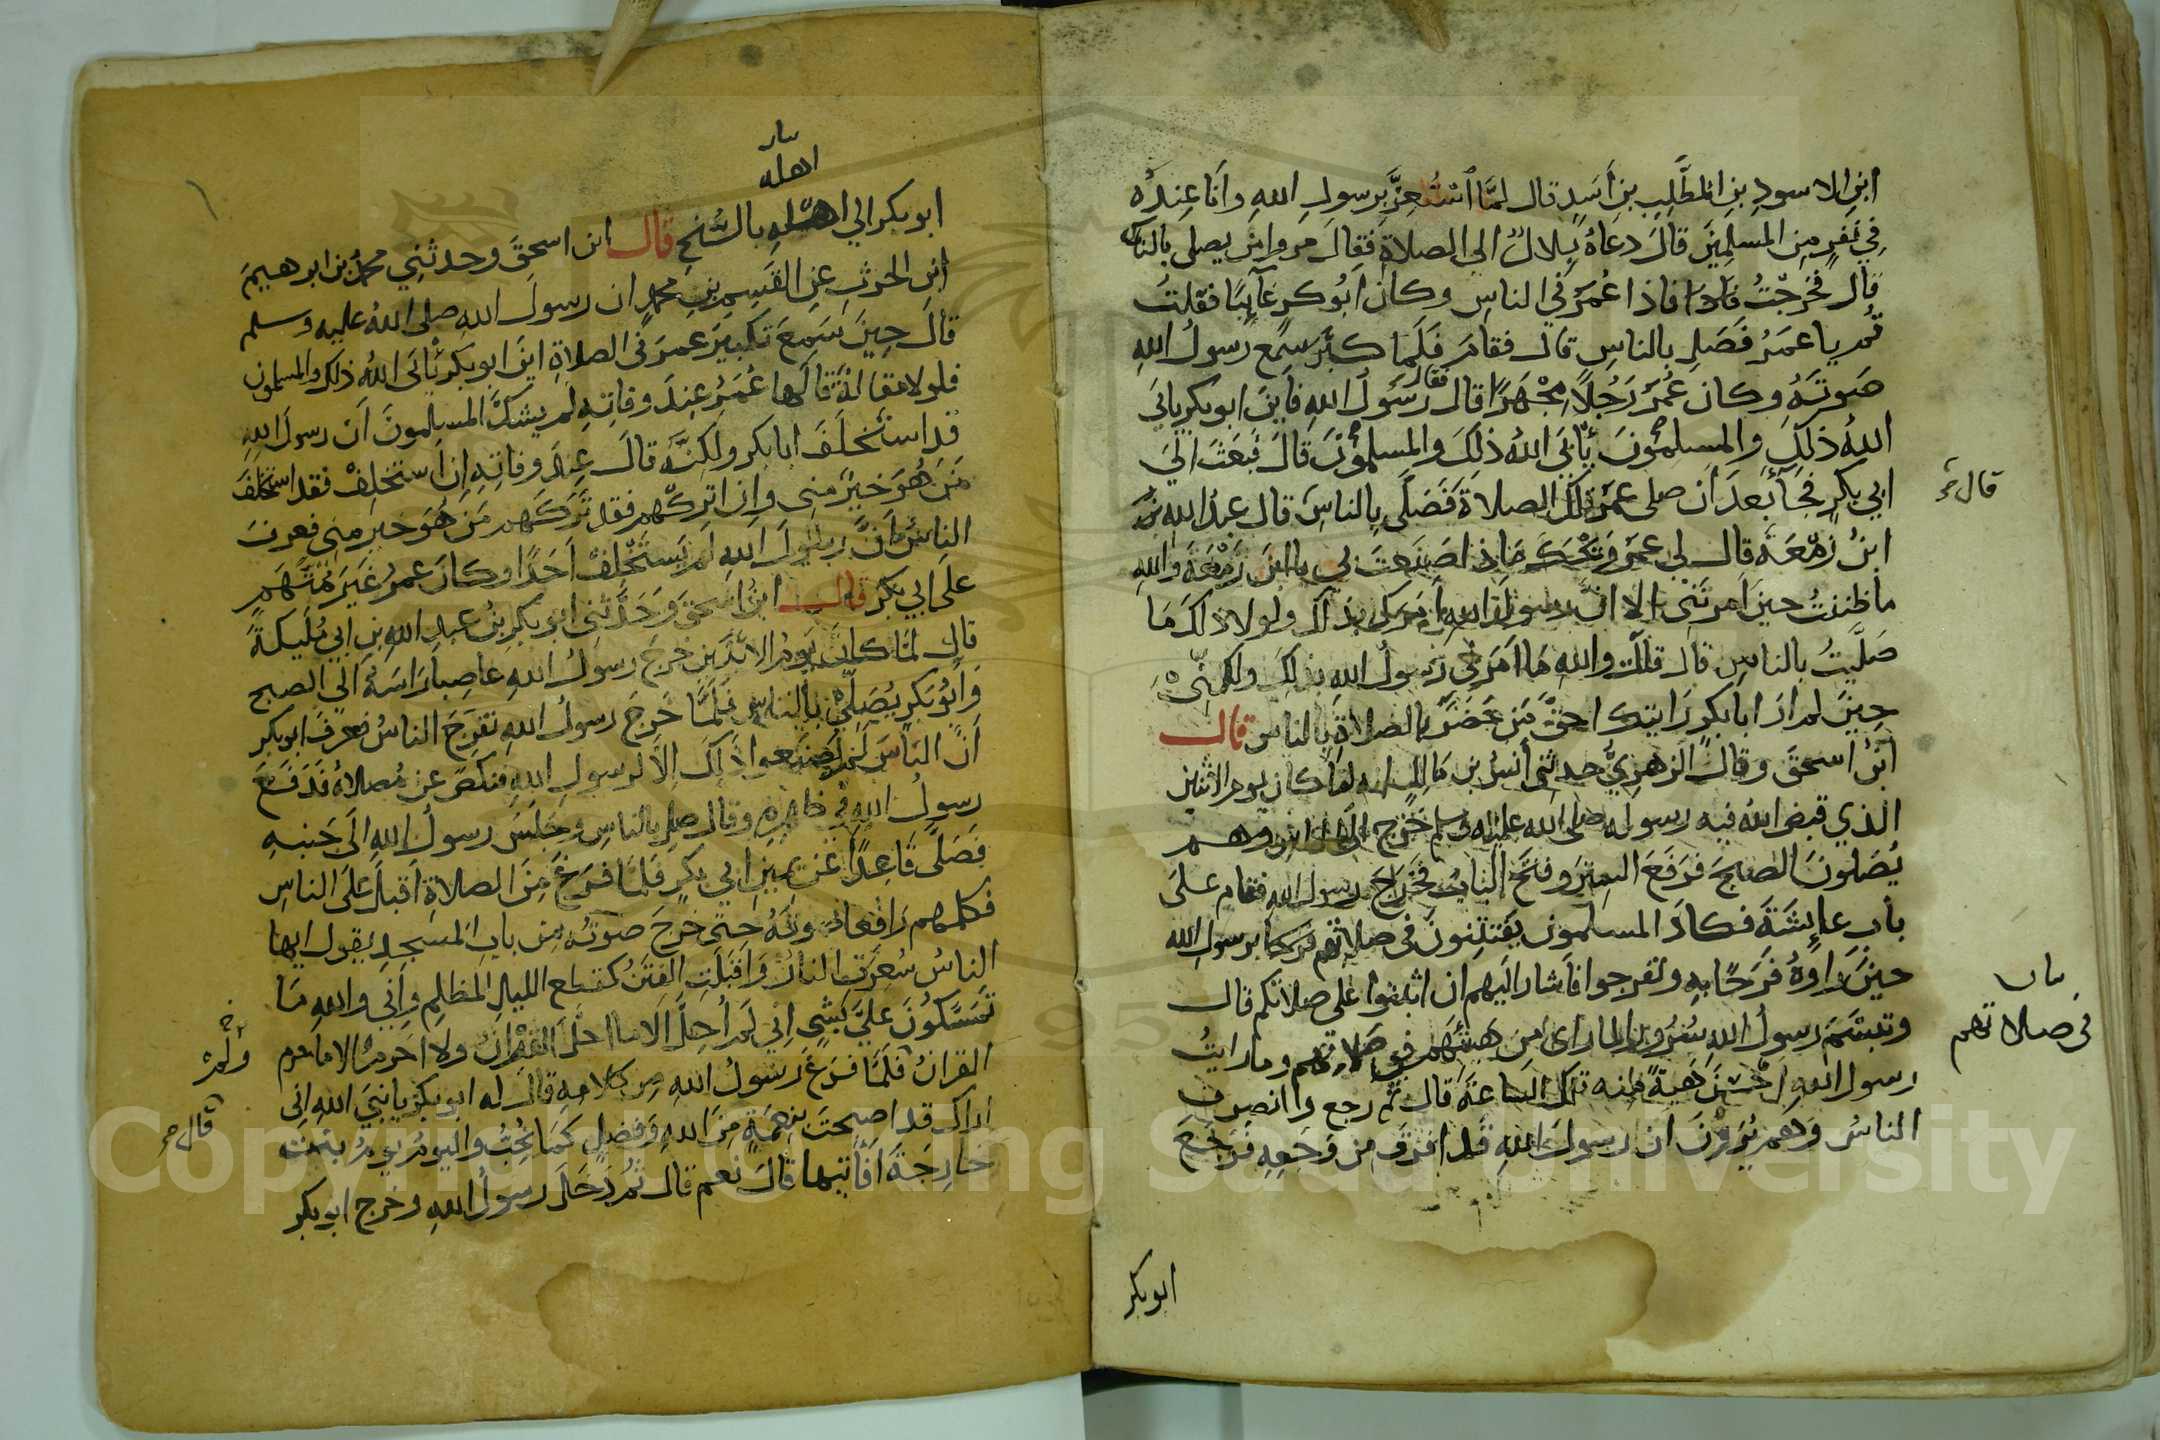 ابنِ الاسودِ بنِ المطَّلِبِ بنِ أَسَدٍ قال لمَّا اسْتُعِزَّ برسولِ اللهِ وأَنَا عِندَه
فِي نَفَرٍ مِن المسلمِينَ قالَ دعاهُ بِلالٌ الى الصلاةِ فقالَ مروا من يصلي بالناس
قال فخرجتُ فاذا عُمَرُ في الناسِ وكان ابُو بكرٍ غايبًا فقلتُ
قُم يا عمَرُ فَصَلِ بالناسِ قال فقامَ فلما كبَّرَ سمع رسولُ اللهِ
صَوتَهُ وكان عُمَرُ رَجُلًا مِجْهَرًا قال فقال رسَولُ اللهِ فاَينَ ابو بكرٍ يابَى
اللهُ ذلِكَ والمسلمُونَ يأبَى اللهُ ذلِكَ والمسلمُونَ قالَ فبَعَثَ اليَ
ابي بكرٍ فجَآ بَعدَ أن صلى عمَرُ تلكَ الصلاةَ فَصَلَّى بِالناسِ قال عبدُ الله بنُ
قال صح
ابنُ زمْعَةَ قال لي عمرُ وَيْحَكَ مَاذا صَنَعتَ بي يا ابنَ زَمْعَةَ واللهِ
ما ظننتُ حينَ اَمرتَنْي الا انَّ رسولَ اللهِ امَرَكَ بذلكَ ولولا ذلكَ مَا
صَلَّيتُ بالناسِ قال قلتُ واللهِ مَا امَرَني رَسولُ اللهِ بذلِكَ ولكِنّيْ
حِينَ لم ارَ ابا بكرٍ رَايتكَ احقَّ مَن حَضَرَ بالصلاةِ بالناسِ قالـ
ابنُ اسحقَ وقالَ الزهريُّ حدثني أَنسُ بن مَالكٍ انه لما كان يومُ الاثنين
الذي قبضَ اللهُ فيه رسولَه صلى الله عليه وسلم خرج الى الناسِ وهم
يُصَلونَ الصبحَ فرَفَعَ السِترَ وفتحَ البابَ فخرَجَ رسولُ اللهِ فقام على
بابِ عايِشَةَ فكادَ المسلمون يَفتتِنونَ في صلاتهم فرَحًا برسولِ الله
حينَ رَاوهُ فَرَحًا بهِ وتفرجوا فاَشار اليهم ان اثبتوا على صلاتكم قال
وتبسَّمَ رسولُ اللهِ سُرُورًا لما راى مِن هَيئتِهم في صَلاتهم وما رايتُ
بيان
في صلاتهم
رسولَ اللهِ احْسَنَ هَيةً منه تلكَ الساعَةَ قالَ ثم رجع وانصرف
الناسُ وَهم يُرَوْنَ ان رسولَ اللهِ قد افرَقَ مِن وَجَعِهِ فرَجَعَ
ابو بكر
بيان
اهله
ابو بكر الي اهلهِ بالسُّنحِ قال ابن اسحقَ وحدثَنِي محمدُ بن ابرهيمَ
ابنِ الحرثِ عَنِ القَسِمِ بنِ محمدٍ ان رسولَ اللهِ صلى اللهُ عليه وسلم
قالَ حِينَ سَمعَ تكبيرَ عمرَ في الصلاةِ اينَ ابو بكرٍ يأبَى اللهُ ذلك والمسلمون
فلولا مقالَةٌ قالَها عُمَرُ عِندَ وفاتِهِ لم يشكَّ المسلمونَ اَن رسولَ اللهِ
قد استَخلَفَ ابا بكرٍ ولكنَّه قالَ عِندَ وفاتِهِ ان استخلِفْ فقد استخلفَ
مَن هُوَ خيرٌ مني وان اتركهم فقد تَرَكَهم مَن هُوَ خير مني فعرفَ
الناسُ اَنَّ رسُولَ اللهِ لم يَستَخْلِفْ اَحَدًا وكانَ عمرُ غَيرَ مُتَّهَم
علَى ابي بكرٍ قالـ ابنُ اسحقَ وَحَدَّثني ابو بكرِ بنُ عبدِ اللهِ بنِ ابي مُلَيكَةَ
قال لمَّا كانَ يَومُ الاثنَينِ خرجَ رسولُ اللهِ عاصِبًا رَاسَهُ الي الصبح
وابُو بَكرٍ يُصَلِّيْ بالناسِ فلمَّا خَرجَ رسولُ اللهِ تفرجَ الناسُ فعرفَ ابو بكر
اَنَّ الناسَ لم يَصنَعوا ذلكَ الا لرسولِ اللهِ فنكصَ عن مُصلاهُ فَدَفَعَ
رسولُ اللهِ فيْ ظهرهِ وقال صلِ بالناسِ وجَلسَ رسولُ اللهِ اِلَى جَنبهِ
فَصَلَّى قَاعِدًا عَن يَمينِ ابي بكرٍ فلمَّا فرَغَ مِنَ الصلاةِ اَقبلَ علَى الناسِ
فكلمهم رَافعًا صوتَهُ حتى خرجَ صَوتُه مِن بابِ المسجدِ يقول ايها
الناسُ سُعِّرَتِ النارُ وَاقبَلَتِ الفِتَنُ كقطعِ الليلِ المظلِمِ وإَني واللهِ مَا
تمسَّكُونَ علَيَّ بشَيْ اِني لم اُحِلَّ الا ما احَلَّ القُرْانُ ولم احَرم الا ما حرم
ولم
القرانُ فلمَّا فرغَ رَسولُ اللهِ مِن كلامهِ قالَ له ابو بكرٍ يا نبيَ اللهِ اني
قال صح
اراكَ قد اصبحتَ بنِعمَةٍ مِنَ اللهِ وَفضلٍ كَمَا نُحِبُّ واليومُ يومُ بنت
خارِجَةَ اَفآتيها قالَ نعم قال ثُم دَخلَ رسولُ اللهِ وخرج ابو بكر
Copyright © King Saud University